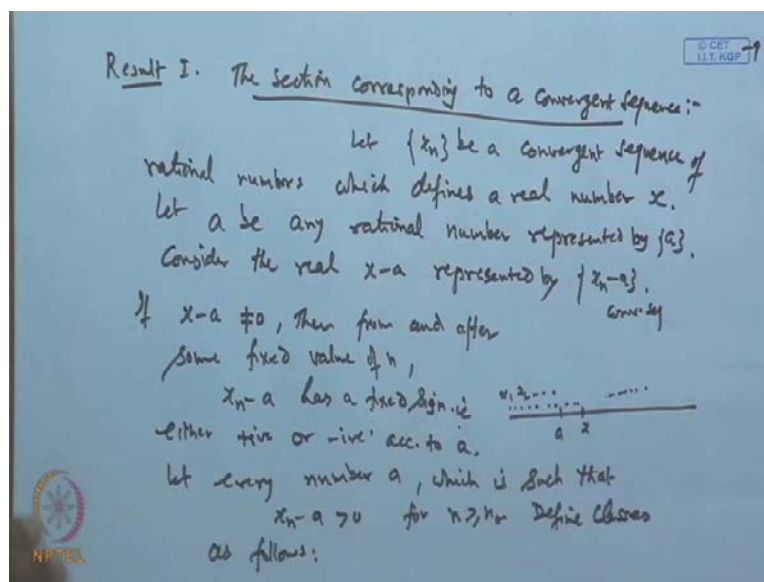 © CET
I.I.T. KGP
Result I. The section corresponding to a convergent sequence:-
Let {xn} be a convergent sequence of
rational numbers which defines a real number x.
Let a be any rational number represented by {a}.
Consider the real x-a represented by {xn-a}.
conv. seq
If x-a ≠0, then from and after
some fixed value of n,
xn-a has a fixed sign. ie
either +ive or -ive acc. to a.
a x
Let every number a, which is such that
xn-a >0 for n≥n0. Define classes
as follows:
NPTEL